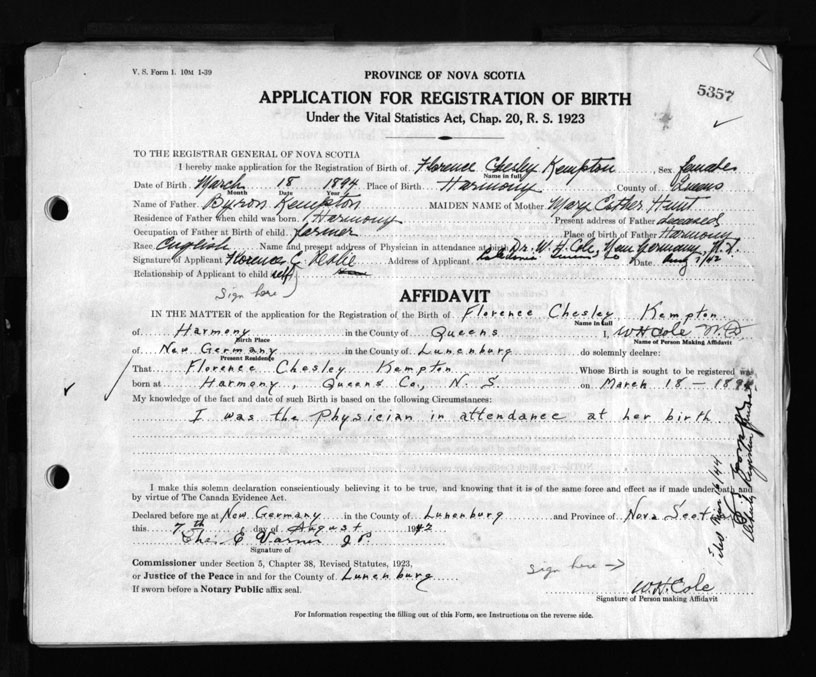 V. S. Form 1. 10M 1-39
PROVINCE OF NOVA SCOTIA
5357
APPLICATION FOR REGISTRATION OF BIRTH
Under the Vital Statistics Act, Chap. 20, R. S. 1923
TO THE REGISTRAR GENERAL OF NOVA SCOTIA
I hereby make application for the Registration of Birth of Florence Chesley Kempton Sex female
Name in full
Date of Birth March 18 1894 Place of Birth Harmony County of Queens
Month Date Year
Name of Father Byron Kempton MAIDEN NAME of Mother Mary Esther Hunt
Residence of Father when child was born Harmony Present address of Father deceased
Occupation of Father at Birth of child farmer Place of birth of Father Harmony
Race English Name and present address of Physician in attendance at birth Dr. W. H. Cole, New Germany, N.S.
Signature of Applicant Florence C. Address of Applicant Caledonia Queens Co Date Aug 7/42
Relationship of Applicant to child self
Sign here
AFFIDAVIT
IN THE MATTER of the application for the Registration of the Birth of Florence Chesley Kempton
Name in full
of Harmony in the County of Queens I, W H Cole M.D
Birth Place Name of Person Making Affidavit
of New Germany in the County of Lunenburg do solemnly declare:
Present Residence
That Florence Chesley Kempton Whose Birth is sought to be registered was
born at Harmony, Queens Co., N. S. on March 18-1894
My knowledge of the fact and date of such Birth is based on the following Circumstances:
I was the Physician in attendance at her birth
I make this solemn declaration conscientiously believing it to be true, and knowing that it is of the same force and effect as if made under oath and
by virtue of The Canada Evidence Act.
Declared before me at New Germany in the County of Lunenburg and Province of Nova Scotia
this 7th day of August 1942
Chas E Varner J.P.
Signature of
Commissioner under Section 5, Chapter 38, Revised Statutes, 1923,
or Justice of the Peace in and for the County of Lunenburg
If sworn before a Notary Public affix seal.
Sign here →
W.H. Cole
Signature of Person making Affidavit
For Information respecting the filling out of this Form, see Instructions on the reverse side.